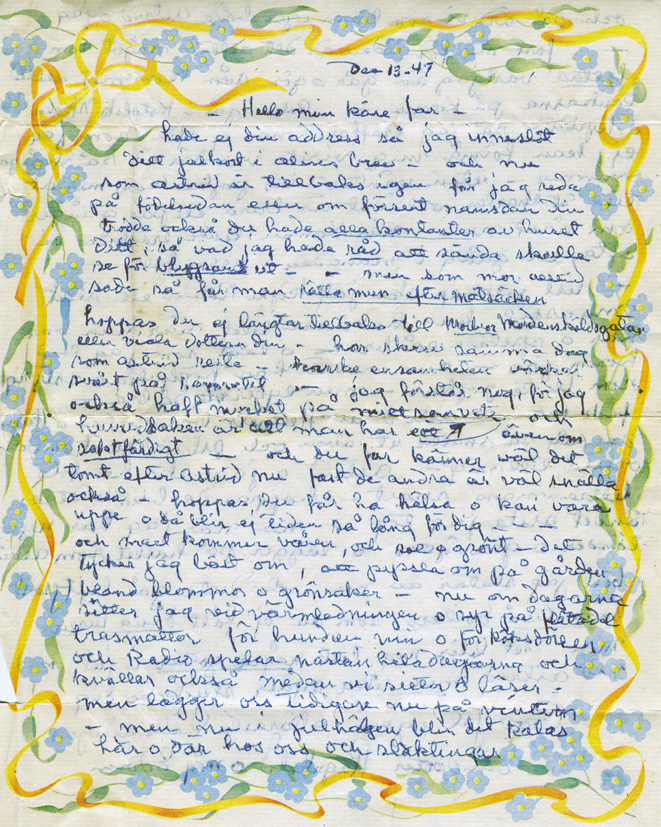 Dec 13-47
- Hello min käre far -
hade ej din address så jag inneslöt
Ditt julkort i brev - och nu
som astrid är tillbaks igen får jag reda
på födelsedan eller om försent namsdan Din
trodde också du hade alla kontanter av huset
Ditt, så vad jag hade råd att sända skulle
se för ut - - men som mor astrid
sade så får man rätta mun efter matsäcken
hoppas du ej längtar tillbaks till Nordenskiöldsgatan
eller viola Dottern din - hon skrev samma dag
som astrid reste - ensamheten
svårt på - jag förstår nog, för jag
också haft på mitt samvete och
huvudsaken är att man har ett även om
- och du far känner väl det
tomt efter astrid nu fast de andra är väl snälla
också - hoppas Du får ha hälsa o kan vara
uppe o då blir ej tiden så lång för dig - -
och snart kommer våren, och sol o grönt - det
tycker jag bäst om, att pyssla om på gården
bland blommor o grönsaker - nu om dagarna
sitter jag vid värmledningen o syr på
trasmattor för hunden min o för köksdörren
och Radio spelar nästan hela dagarna och
kvällar också medan vi sitter o läser -
men lägger oss tidigare nu på vintern
- men nu i julhälgen blir det kalas
här o där hos oss och släktingar